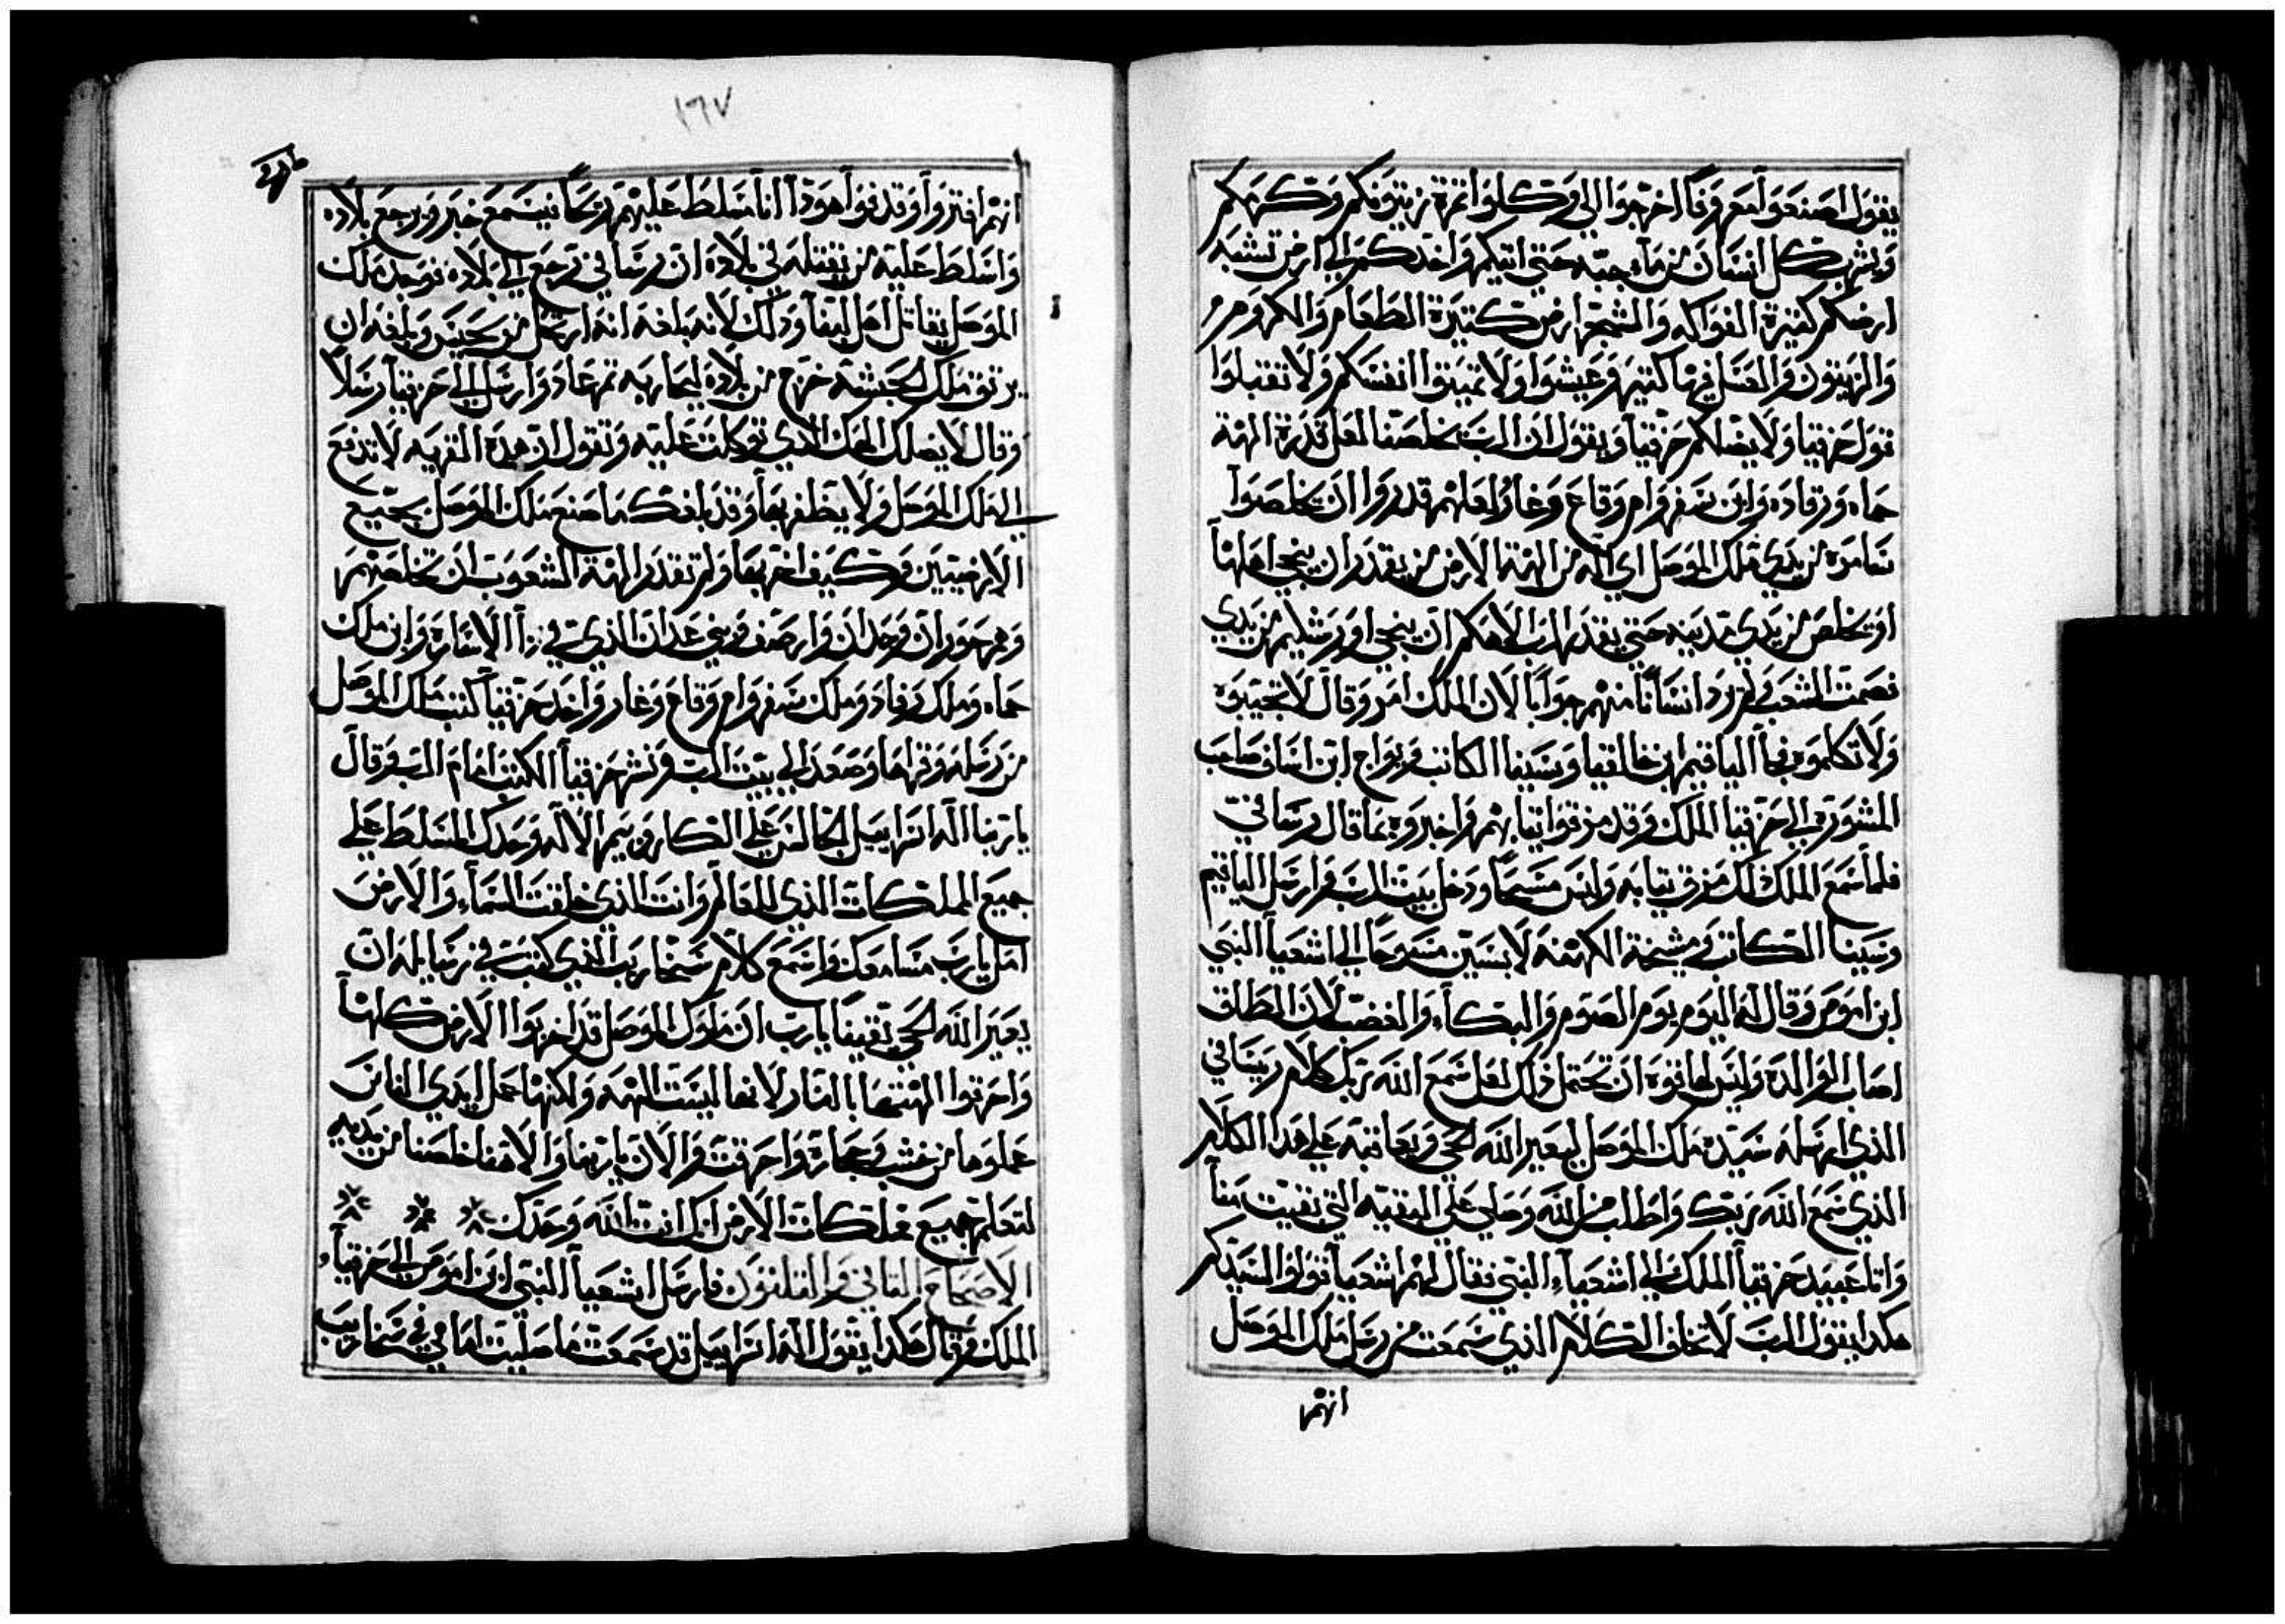 يقول اصنعوا معروفا اخرجوا الي وكلوا ثمرة زيتونكم وكرمكم
ويشرب كل انسان من ماء جبه حتى اتيكم واخدكم الي ارض تشبه
ارضكم كثيرة الفواكه والشجر ارض كثيرة الطعام والكروم
والزيتون والعسل في ما كثير وعيشوا ولا تميتوا انفسكم ولا تقبلوا
قول حزقيا ولا يضلكم حزقيا ويقول ان الرب يخلصنا لعل قدرة الهة
حماه ورقاده واين سفروام وقاع وغار لعلهم قدروا ان يخلصوا
سامره من يدي ملك الموصل اي اله من الهة الارض من يقدر ان ينجي اهلها
او يخلص من يدي مدينه حتى يقدر الرب الاهكم ان ينجي اورشليم من يدي
فصمت الشعب ولم يرد انسانا منهم جوابا لان الملك امر وقال لا تجيبوه
ولا تكلموه فجا الياقيم ابن خالقيا وسبنيا الكاتب ويواخ ابن اساف صاحب
المشورة الي حزقيا الملك وقد مزقوا تيابهم واخبروه بما قال رساني
فلما سمع الملك ذلك مزق تيابه ولبس مسحا ودخل بيت الرب وارسل الياقيم
وسبنيا الكاتب ومشيخة الكهنة لابسين مسوحا الي اشعيا النبي
ابن اموص وقال له اليوم يوم الصوم والبكاء والغضب لان المطلق
اصاب الوالدة وليس لها قوة ان تحتمل ذلك لعل سمع الله ربك كلام ربساني
الذي ارسله سيده ملك الموصل ليعير الله الحي ويعاقبه علي هذا الكلام
الذي سمع الله ربك واطلب من الله وصلي علي البقيه التي بقيت منا
واتا عبيد حزقيا الملك الي اشعياء النبي فقال لهم اشعيا قولوا لسيدكم
هكدا يقول الرب لا تخاف الكلام الذي سمعت من رسل ملك الموصل
انهم
١٦٧
انهم افتروا وقدفوا هودا انا مسلط عليهم ريحا فيسمع خبر ويرجع بلاده
واسلط عليه من يقتله في بلاده ان رساني رجع الي بلاده فوجد ملك
الموصل يقاتل اهل ليفا ودلك لانه بلغه انه ارتحل من يحيس وبلغه ان
برتق ملك الحبشة خرج من بلاده ليحاربه تم عاد وارسل الي حزقيا رسلا
وقال لا يضلك الهك الذي توكلت عليه وتقول ان هده القريه لا تدفع
الي ملك الموصل ولا يظفر بها وقد بلغك ما صنع ملك الموصل بجميع
الارضيين وكيف اخربها ولم تقدر الهة الشعوب ان تخلصهم
وهم جوران وحدان وارصف وبني عدان الذي في دا الاساره واين ملك
حماه وملك رفاد وملك سفروام وقاع وغار واخد حزقيا كتب ملك الموصل
من رسله وقراها وصعد الي بيت الرب ونشر حزقيا الكتب امام الرب وقال
يا ربنا اله اسراييل الجالس علي الكاروبيم الاله وحدك المسلط علي
جميع المملكات الذي للعالم وانت الذي خلقت السماء والارض
امل يا رب مسامعك واسمع كلام سنحاريب الذي كتب في رسايله ان
يعير الله الحي يقينا يا رب ان ملوك الموصل قد اخربوا الارض كلها
واحرقوا الهتها بالنار لانها ليست الهه ولكنها عمل ايدي الناس
عملوها من خشب وحجاره واحرقت والان يا ربنا والاهنا خلصنا من يديه
لتعلم جميع مملكات الارض انك انت الله وحدك
الاصحاح الثاني والثلثون فارسل اشعيا النبي ابن اموص الي حزقياء
الملك وقال هكدا يقول اله اسراييل قد سمعت ما صليت امامي في سنحاريب